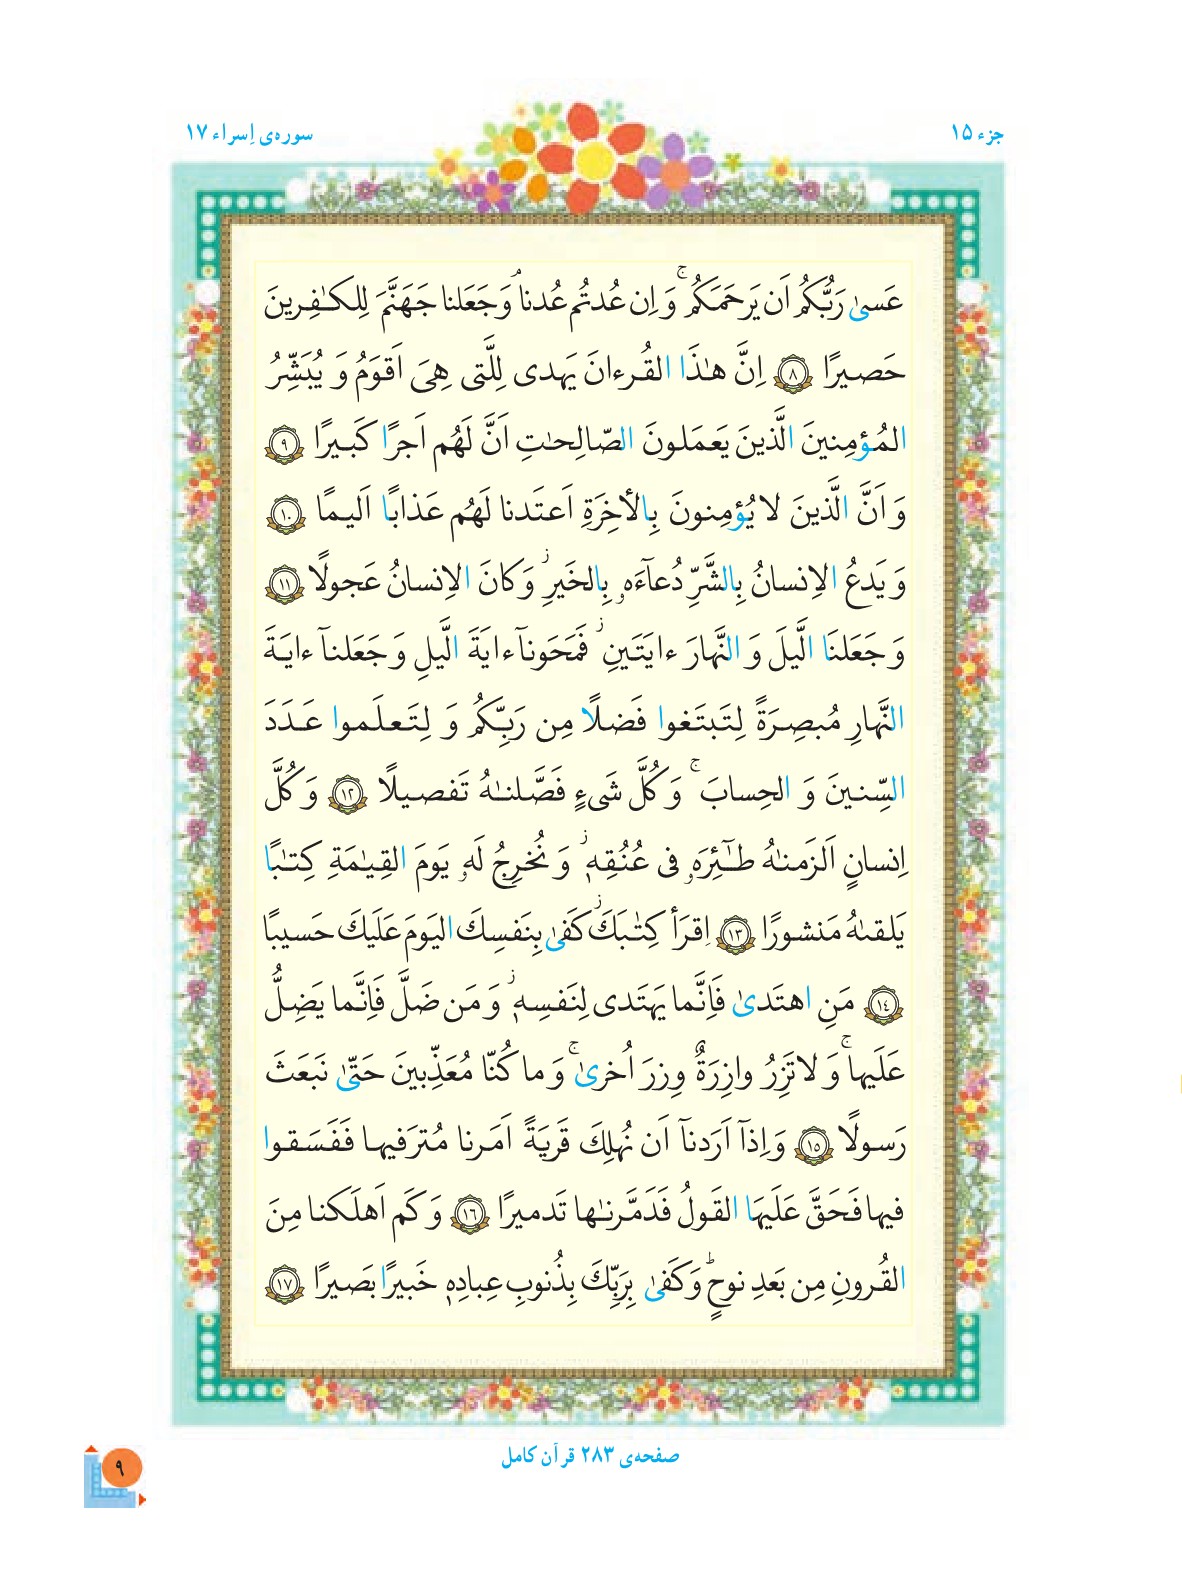 جزء ۱۵
سوره‌ی اِسراء ۱۷
عَسىٰ رَبُّكُم اَن يَرحَمَكُم ۚ وَ اِن عُدتُم عُدنا ۘ وَ جَعَلنا جَهَنَّمَ لِلكـٰفِرينَ
حَصيرًا ٨ اِنَّ هـٰذَا القُرءانَ يَهدى لِلَّتى هِىَ اَقوَمُ وَ يُبَشِّرُ
المُؤمِنينَ الَّذينَ يَعمَلونَ الصّالِحـٰتِ اَنَّ لَهُم اَجرًا كَبيرًا ٩
وَ اَنَّ الَّذينَ لا يُؤمِنونَ بِالأخِرَةِ اَعتَدنا لَهُم عَذابًا اَليمًا ١٠
وَ يَدعُ الاِنسانُ بِالشَّرِّ دُعآءَهۥ بِالخَيرِ ۖ وَ كانَ الاِنسانُ عَجولًا ١١
وَ جَعَلنَا الَّيلَ وَ النَّهارَ ءايَتَينِ ۖ فَمَحَونآ ءايَةَ الَّيلِ وَ جَعَلنآ ءايَةَ
النَّهارِ مُبصِرَةً لِتَبتَغوا فَضلًا مِن رَبِّكُم وَ لِتَعلَموا عَدَدَ
السِّنينَ وَ الحِسابَ ۚ وَ كُلَّ شَىءٍ فَصَّلنـٰهُ تَفصيلًا ١٢ وَ كُلَّ
اِنسانٍ اَلزَمنـٰهُ طـٰٓئِرَهۥ فى عُنُقِهٖ ۖ وَ نُخرِجُ لَهۥ يَومَ القِيـٰمَةِ كِتـٰبًا
يَلقـىٰهُ مَنشورًا ١٣ اِقرَأ كِتـٰبَكَ ۖ كَفىٰ بِنَفسِكَ اليَومَ عَلَيكَ حَسيبًا
١٤ مَنِ اهتَدىٰ فَاِنَّما يَهتَدى لِنَفسِهٖ ۖ وَ مَن ضَلَّ فَاِنَّما يَضِلُّ
عَلَيها ۚ وَ لا تَزِرُ وازِرَةٌ وِزرَ اُخرىٰ ۚ وَ ما كُنّا مُعَذِّبينَ حَتّىٰ نَبعَثَ
رَسولًا ١٥ وَ اِذآ اَرَدنآ اَن نُهلِكَ قَريَةً اَمَرنا مُترَفيها فَفَسَقوا
فيها فَحَقَّ عَلَيهَا القَولُ فَدَمَّرنـٰها تَدميرًا ١٦ وَ كَم اَهلَكنا مِنَ
القُرونِ مِن بَعدِ نوحٍ ۗ وَ كَفىٰ بِرَبِّكَ بِذُنوبِ عِبادِهٖ خَبيرًا بَصيرًا ١٧
صفحه‌ی ۲۸۳ قرآن کامل
۹